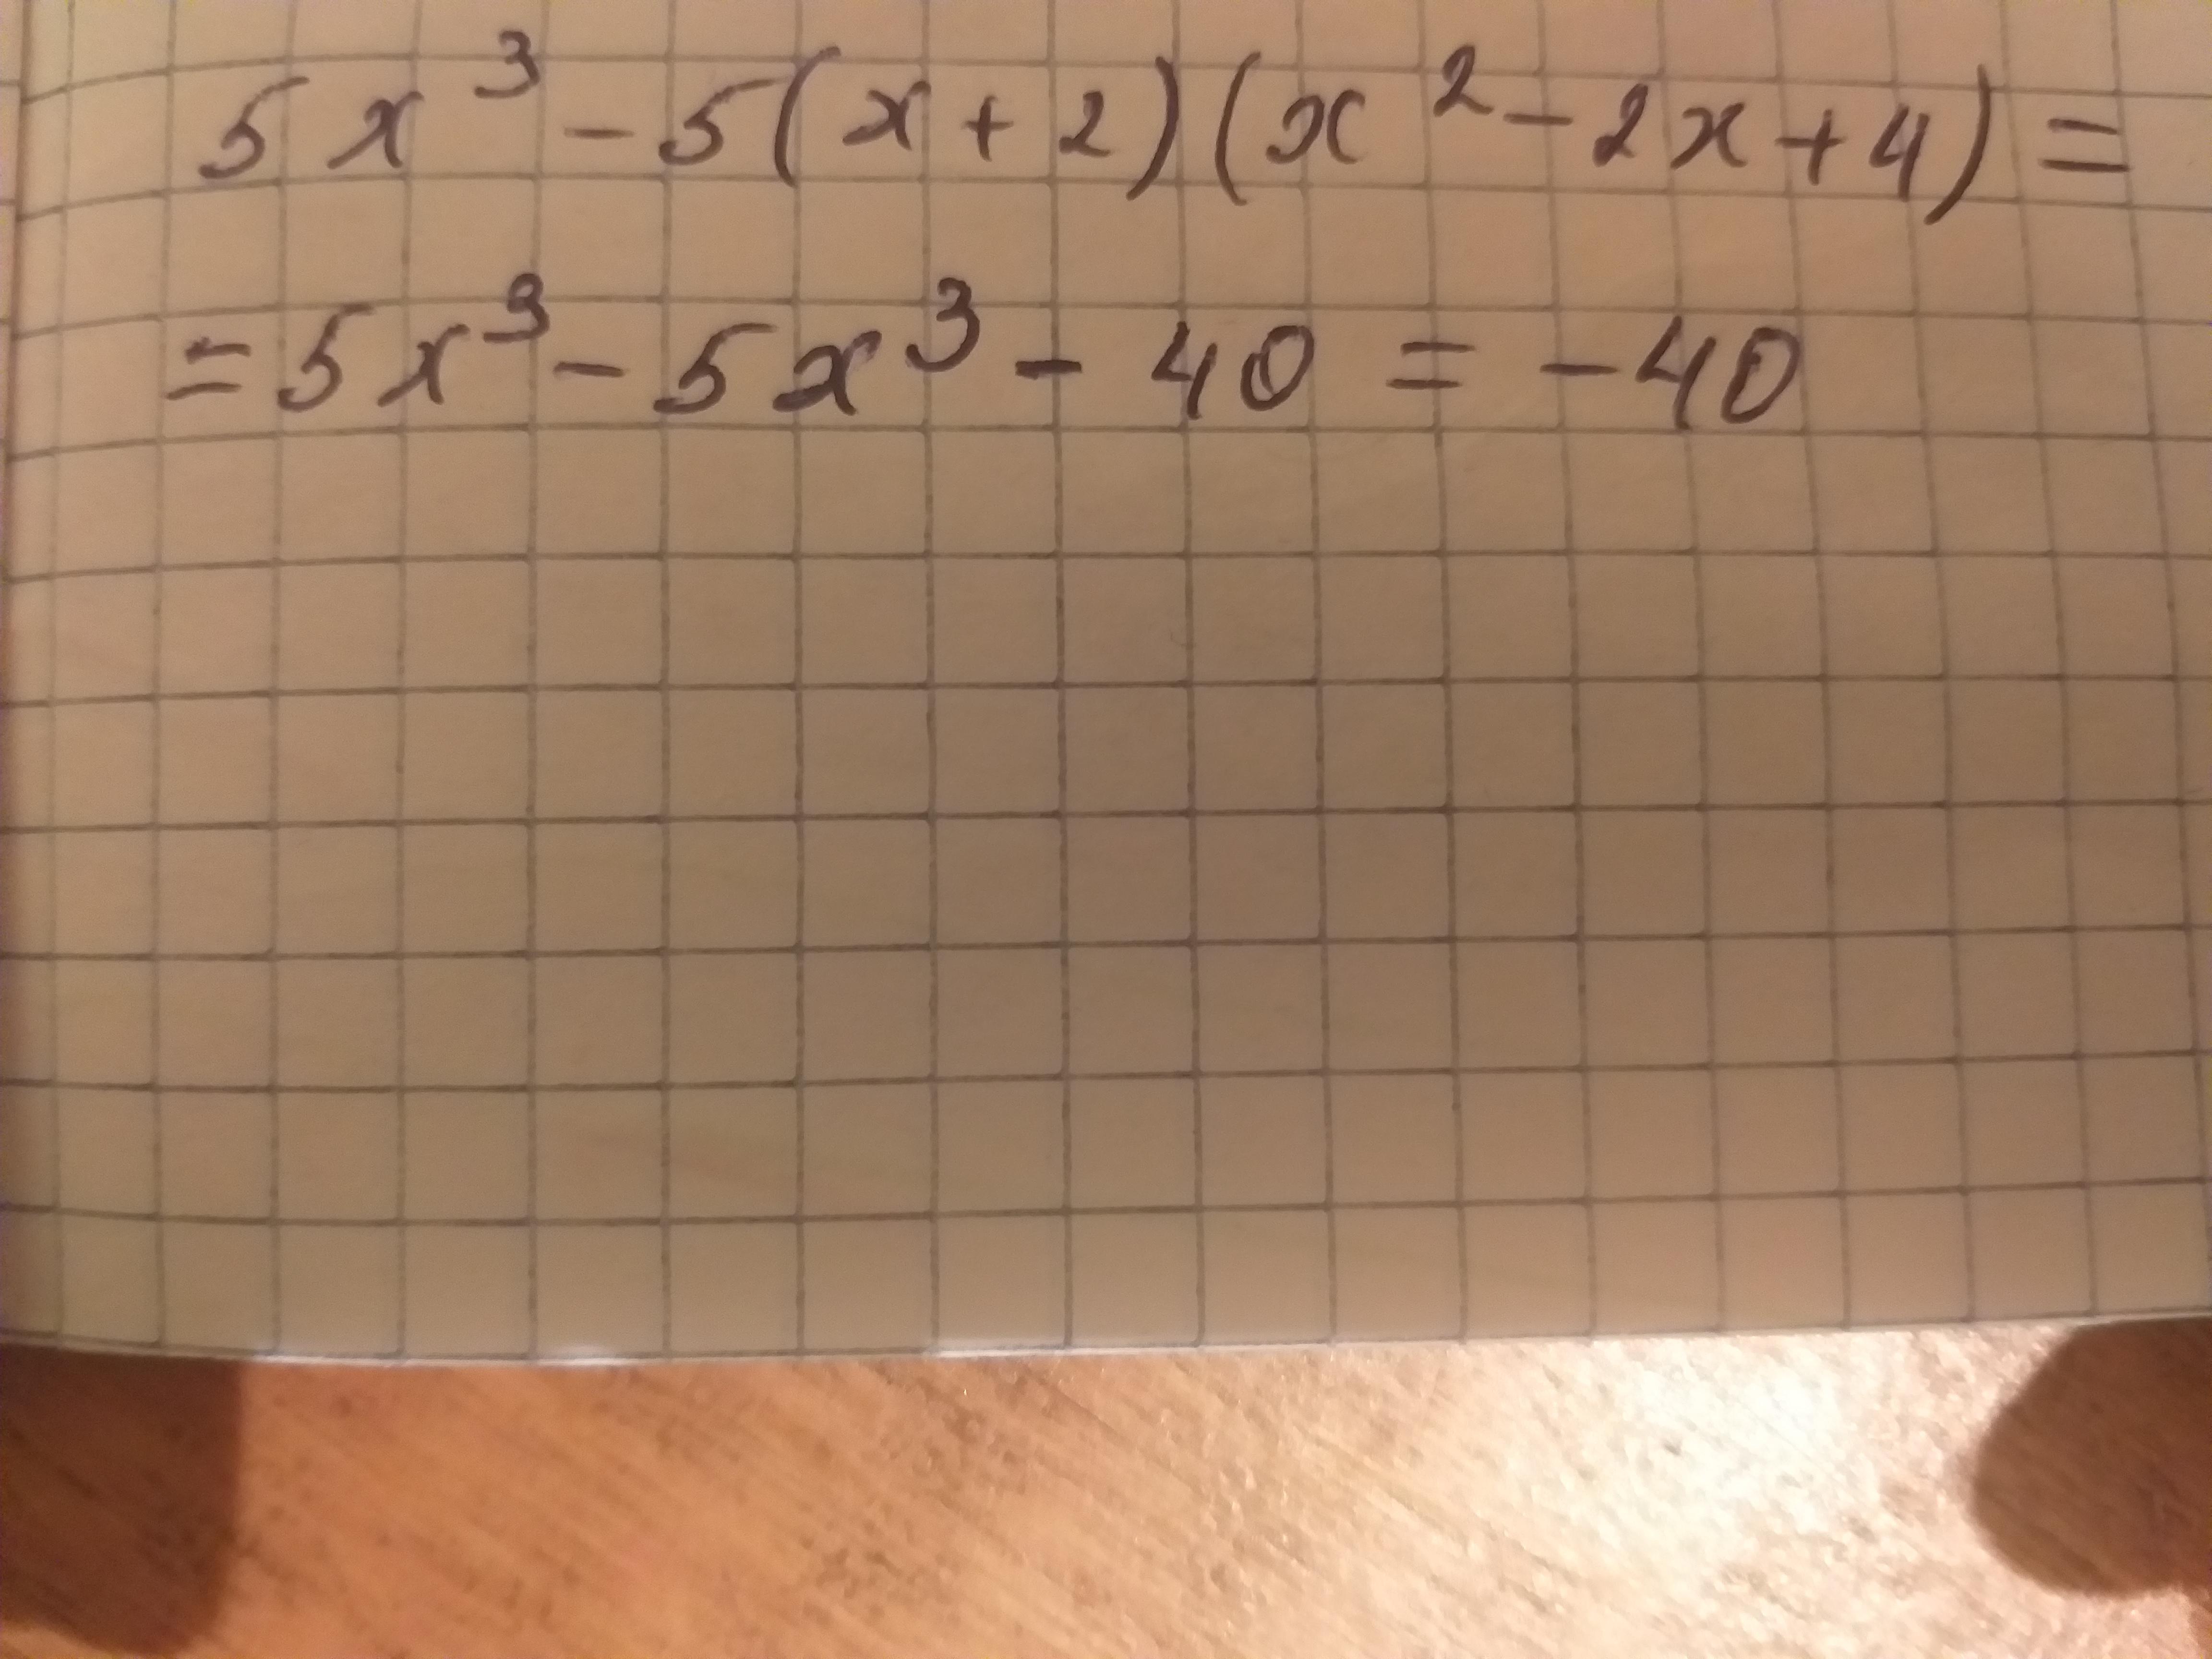 5x³ - 5(x + 2)(x² - 2x + 4) =
= 5x³ - 5x³ - 40 = -40